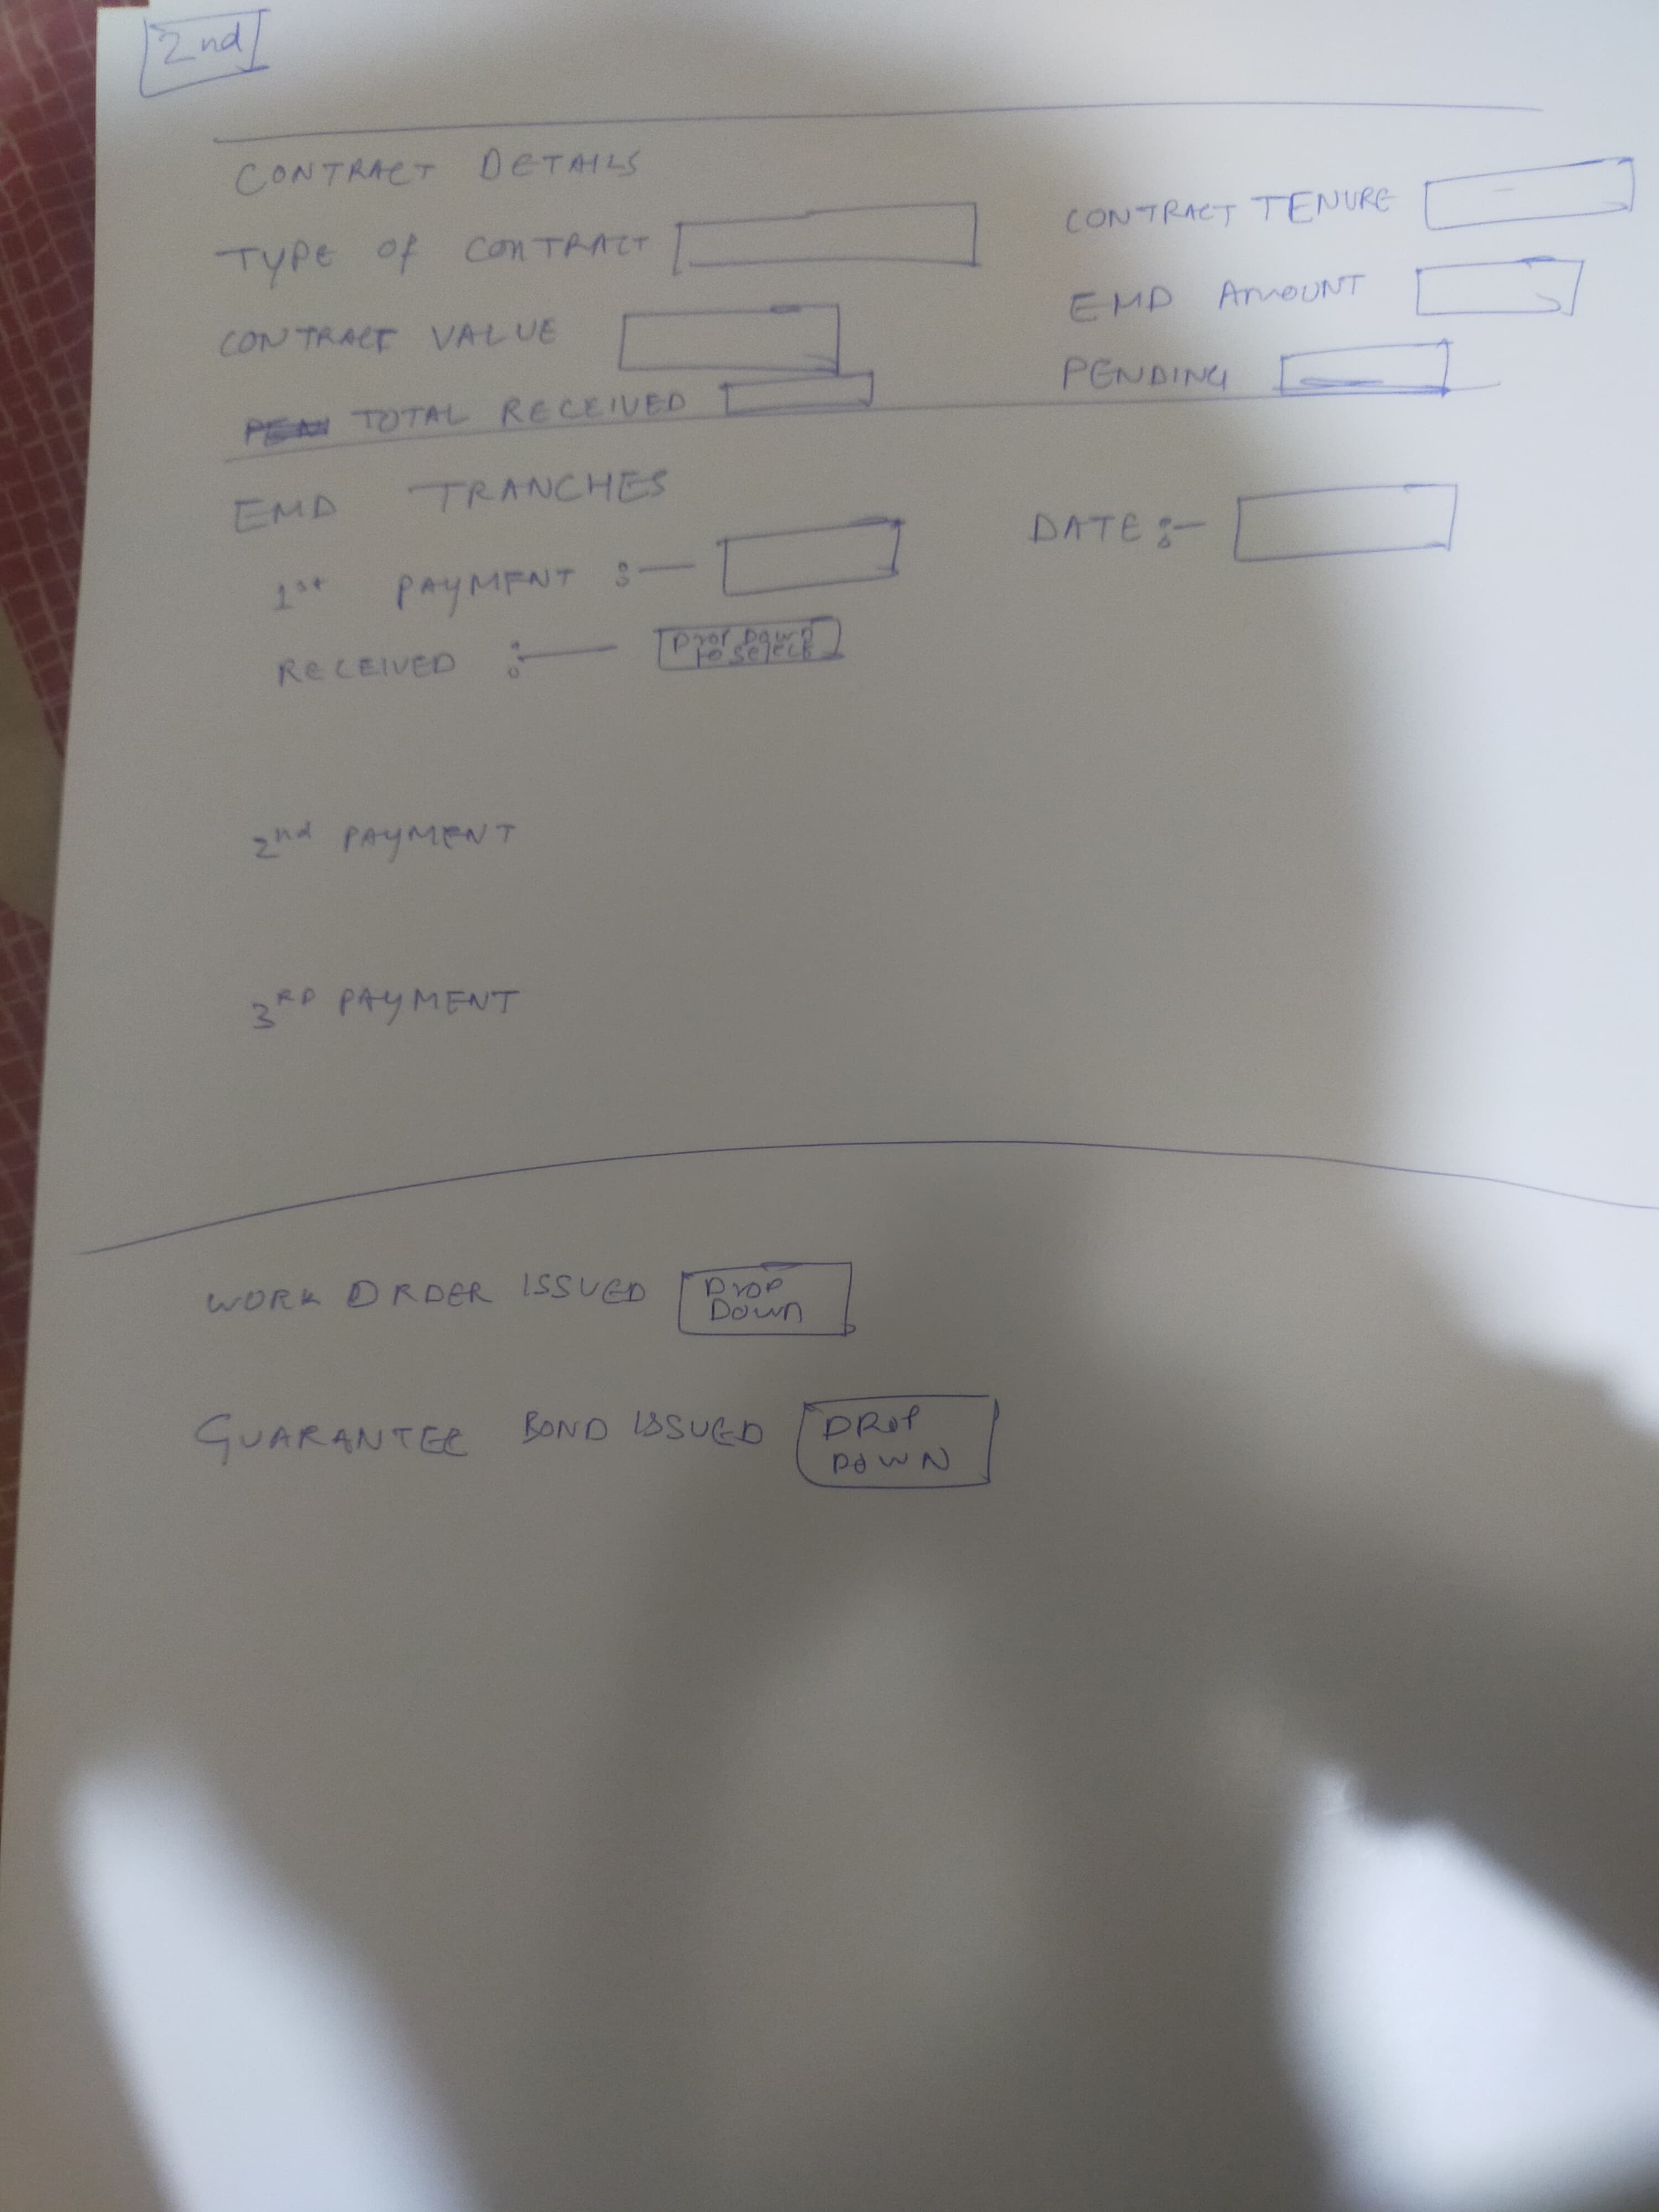 2nd
CONTRACT DETAILS
TYPE Of CONTRACT
CONTRACT TENURE
CONTRACT VALUE
EMD AMOUNT
TOTAL RECEIVED
PENDING
EMD TRANCHES
1st PAYMENT :—
DATE :—
RECEIVED :—
Drop Down
to select
2nd PAYMENT
3RD PAYMENT
WORK ORDER ISSUED
Drop
Down
GUARANTEE BOND ISSUED
DROP
DOWN